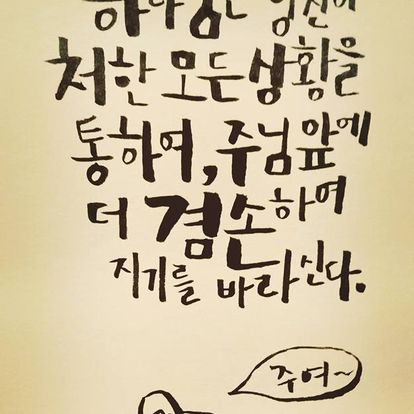 하나님은 당신이
처한 모든 상황을
통하여, 주님 앞에
더 겸손하여
지기를 바라신다.
주여~